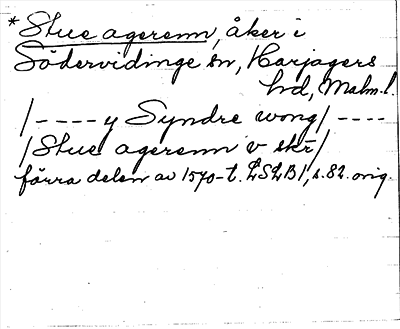 * Stue agerenn, åker i
Södervidinge sn, Harjagers
hd, Malm. l.
/---- y Syndre wong/ ----
/Stue agerenn v skr/
förra delen av 1570-t. LSLB1, s. 82. orig.